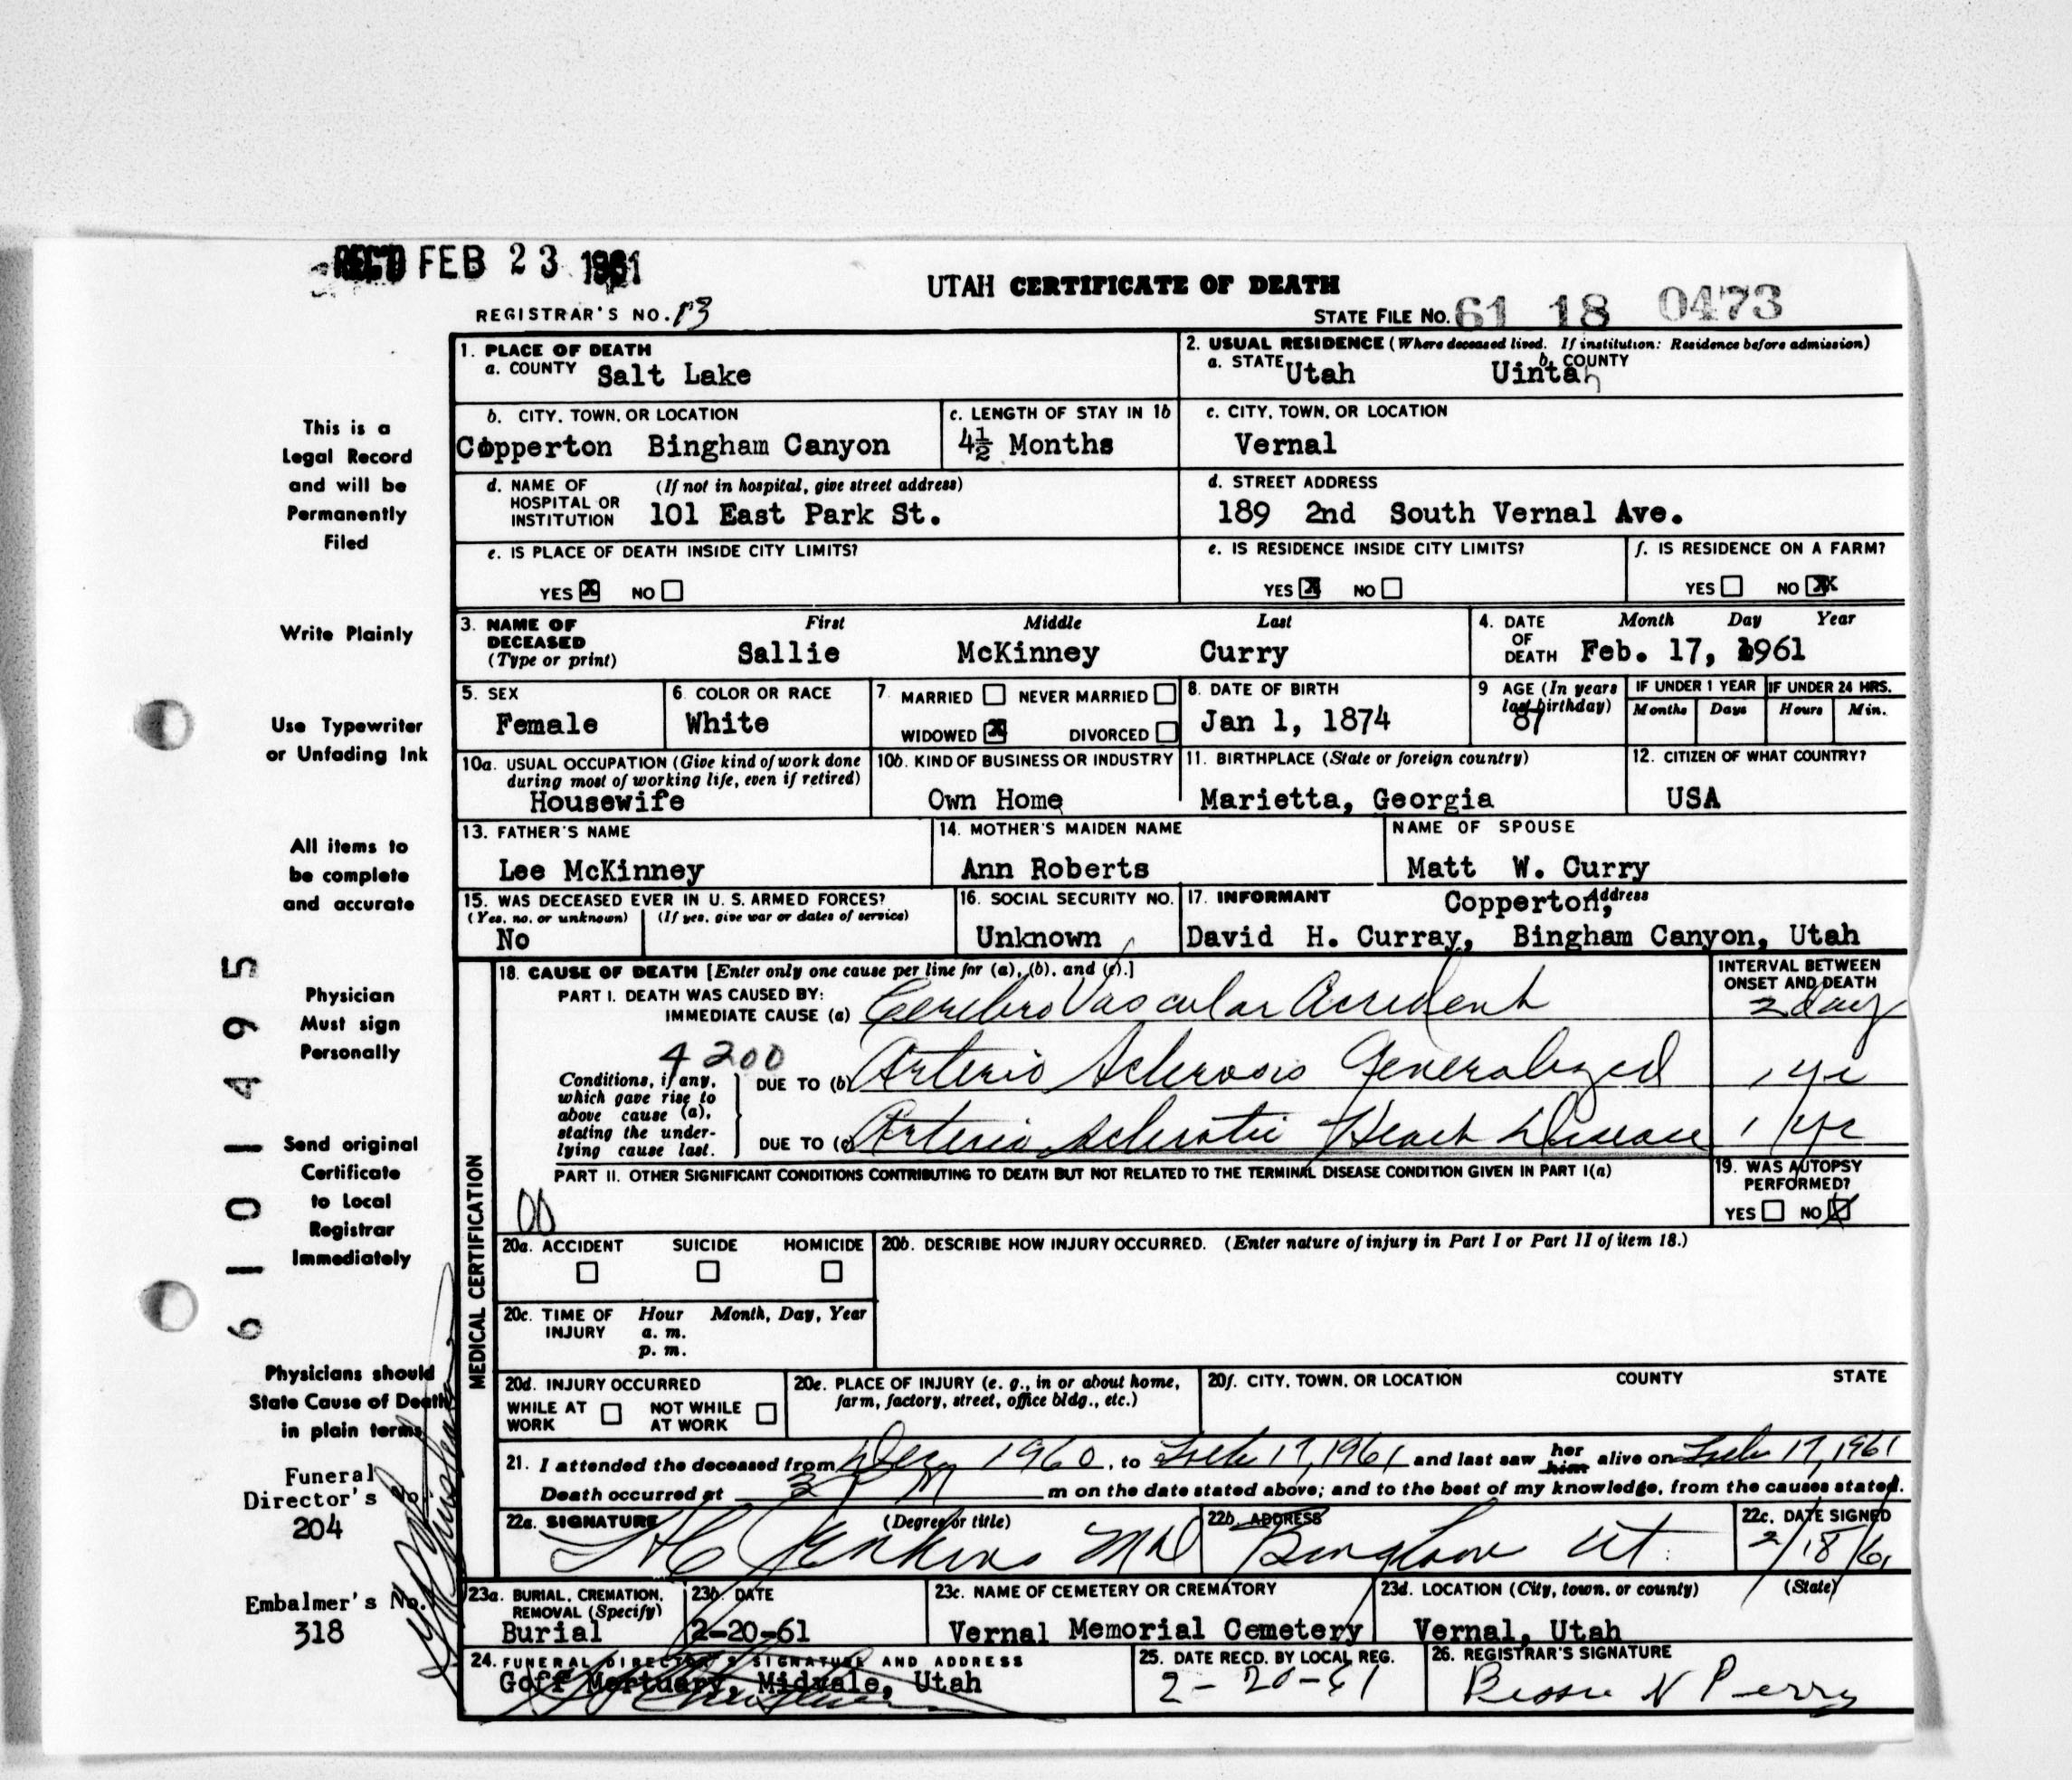 REC'D FEB 23 1961
UTAH CERTIFICATE OF DEATH
REGISTRAR'S NO. 13
STATE FILE NO. 61 18 0473
1. PLACE OF DEATH
a. COUNTY Salt Lake
2. USUAL RESIDENCE (Where deceased lived. If institution: Residence before admission)
a. STATE Utah b. COUNTY Uintah
b. CITY, TOWN, OR LOCATION
Copperton Bingham Canyon
c. LENGTH OF STAY IN 1b
4½ Months
c. CITY, TOWN, OR LOCATION
Vernal
d. NAME OF HOSPITAL OR INSTITUTION (If not in hospital, give street address)
101 East Park St.
d. STREET ADDRESS
189 2nd South Vernal Ave.
e. IS PLACE OF DEATH INSIDE CITY LIMITS?
YES X NO
e. IS RESIDENCE INSIDE CITY LIMITS?
YES X NO
f. IS RESIDENCE ON A FARM?
YES NO X
3. NAME OF DECEASED (Type or print)
First Middle Last
Sallie McKinney Curry
4. DATE OF DEATH Month Day Year
Feb. 17, 1961
5. SEX
Female
6 COLOR OR RACE
White
7. MARRIED NEVER MARRIED
WIDOWED X DIVORCED
8. DATE OF BIRTH
Jan 1, 1874
9 AGE (In years last birthday)
87
IF UNDER 1 YEAR
Months Days
IF UNDER 24 HRS.
Hours Min.
10a. USUAL OCCUPATION (Give kind of work done
during most of working life, even if retired)
Housewife
10b. KIND OF BUSINESS OR INDUSTRY
Own Home
11. BIRTHPLACE (State or foreign country)
Marietta, Georgia
12. CITIZEN OF WHAT COUNTRY?
USA
13. FATHER'S NAME
Lee McKinney
14. MOTHER'S MAIDEN NAME
Ann Roberts
NAME OF SPOUSE
Matt W. Curry
15. WAS DECEASED EVER IN U. S. ARMED FORCES?
(Yes, no, or unknown) (If yes, give war or dates of service)
No
16. SOCIAL SECURITY NO.
Unknown
17. INFORMANT Address
Copperton,
David H. Curray, Bingham Canyon, Utah
MEDICAL CERTIFICATION
18. CAUSE OF DEATH [Enter only one cause per line for (a), (b), and (c).]
INTERVAL BETWEEN
ONSET AND DEATH
PART I. DEATH WAS CAUSED BY:
IMMEDIATE CAUSE (a) Cerebro Vascular Accident 2 day
4200
Conditions, if any,
which gave rise to
above cause (a),
stating the under-
lying cause last.
DUE TO (b) Arterio Sclerosis Generalized 1 yr
DUE TO (c) Arterio Sclerotic Heart Disease 1 yr
PART II. OTHER SIGNIFICANT CONDITIONS CONTRIBUTING TO DEATH BUT NOT RELATED TO THE TERMINAL DISEASE CONDITION GIVEN IN PART I(a)
00
19. WAS AUTOPSY
PERFORMED?
YES NO X
20a. ACCIDENT SUICIDE HOMICIDE
20b. DESCRIBE HOW INJURY OCCURRED. (Enter nature of injury in Part I or Part II of item 18.)
20c. TIME OF INJURY Hour Month, Day, Year
a. m.
p. m.
20d. INJURY OCCURRED
WHILE AT WORK NOT WHILE AT WORK
20e. PLACE OF INJURY (e. g., in or about home,
farm, factory, street, office bldg., etc.)
20f. CITY, TOWN, OR LOCATION COUNTY STATE
21. I attended the deceased from Dec 1960, to Feb 17, 1961 and last saw her him alive on Feb 17, 1961
Death occurred at 3 P M m on the date stated above; and to the best of my knowledge, from the causes stated.
22a. SIGNATURE (Degree or title)
H C Jenkins MD
22b. ADDRESS
Bingham Ut.
22c. DATE SIGNED
2/18/61
23a. BURIAL, CREMATION,
REMOVAL (Specify)
Burial
23b. DATE
2-20-61
23c. NAME OF CEMETERY OR CREMATORY
Vernal Memorial Cemetery
23d. LOCATION (City, town, or county) (State)
Vernal, Utah
24. FUNERAL DIRECTOR'S SIGNATURE AND ADDRESS
Goff Mortuary, Midvale, Utah
25. DATE RECD. BY LOCAL REG.
2-20-61
26. REGISTRAR'S SIGNATURE
Bessie N Perry
This is a
Legal Record
and will be
Permanently
Filed
Write Plainly
Use Typewriter
or Unfading Ink
All items to
be complete
and accurate
Physician
Must sign
Personally
Send original
Certificate
to Local
Registrar
Immediately
Physicians should
State Cause of Death
in plain terms
Funeral
Director's
204
Embalmer's No.
318
6101495